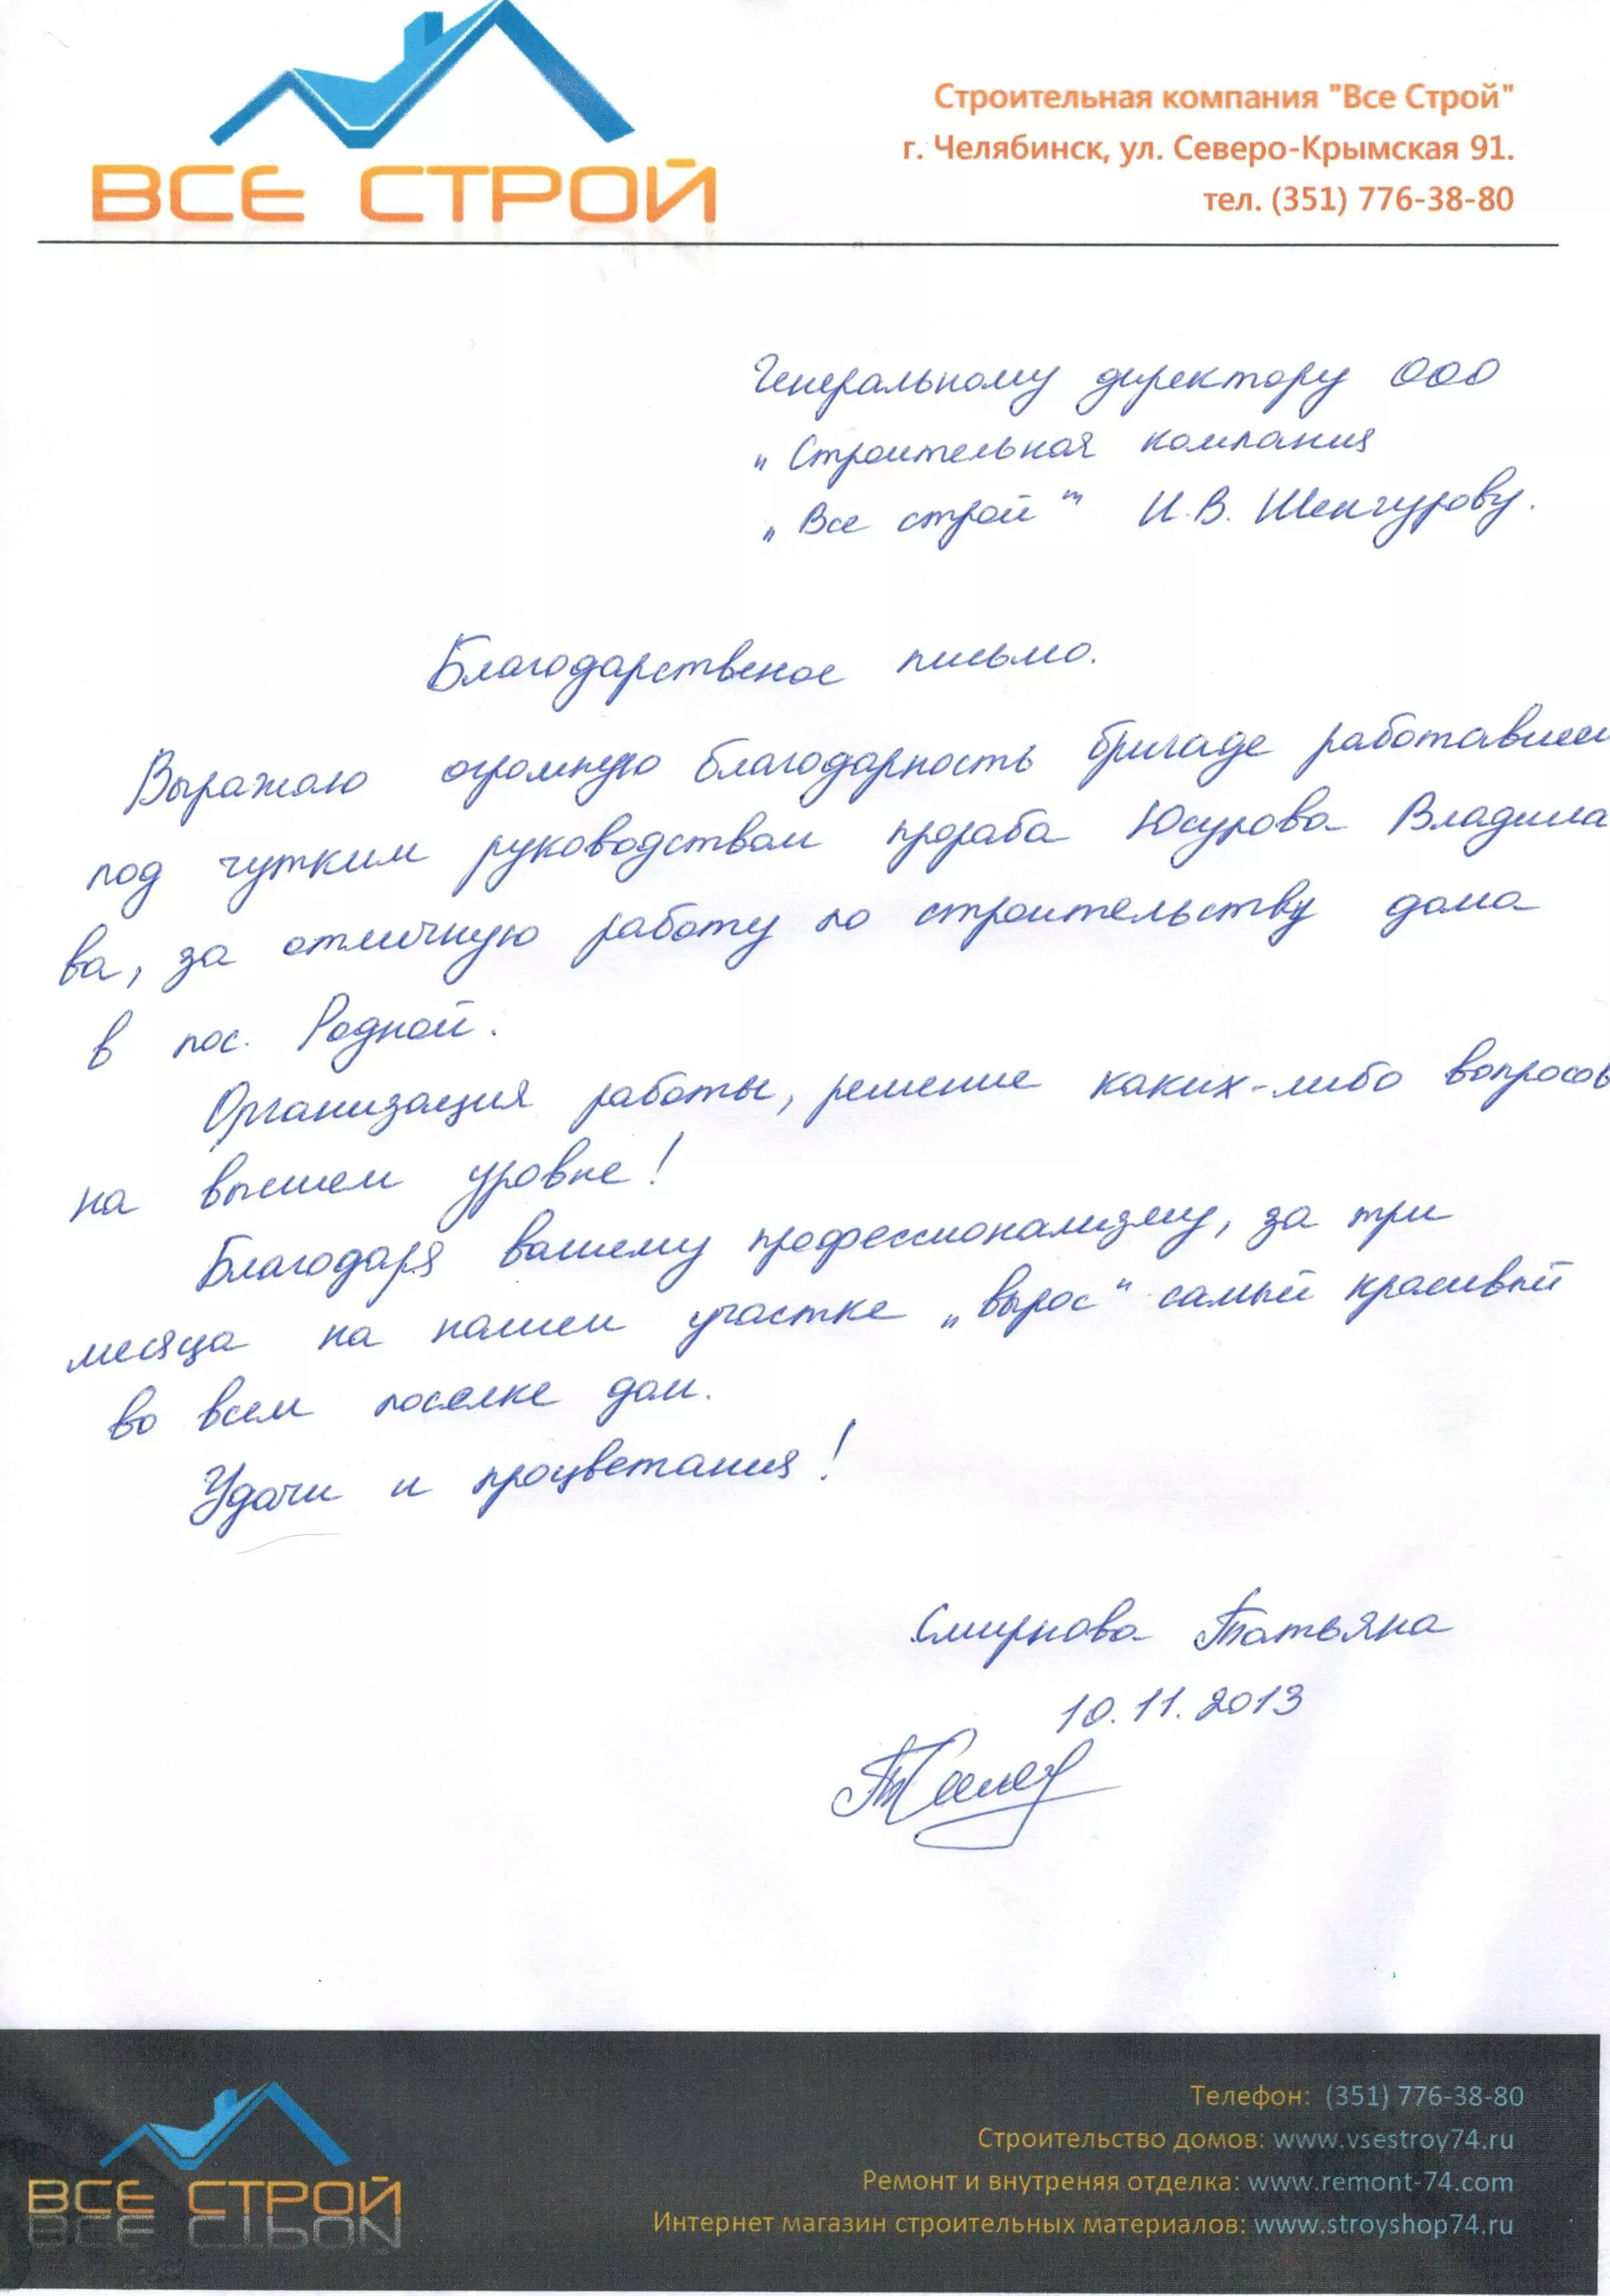 ВСЕ СТРОЙ
Строительная компания "Все Строй"
г. Челябинск, ул. Северо-Крымская 91.
тел. (351) 776-38-80
Генеральному директору ООО
„Строительная компания
„Все строй"" И.В. Шенгурову.
Благодарственое письмо.
Выражаю огромную благодарность бригаде работавшей
под чутким руководством прораба Юсупова Владисла
ва, за отличную работу по строительству дома
в пос. Родной.
Организация работы, решение каких-либо вопросов
на высшем уровне!
Благодаря вашему профессионализму, за три
месяца на нашем участке „вырос" самый красивый
во всем поселке дом.
Удачи и процветания!
Смирнова Татьяна
10.11.2013
ВСЕ СТРОЙ
Телефон: (351) 776-38-80
Строительство домов: www.vsestroy74.ru
Ремонт и внутреняя отделка: www.remont-74.com
Интернет магазин строительных материалов: www.stroyshop74.ru